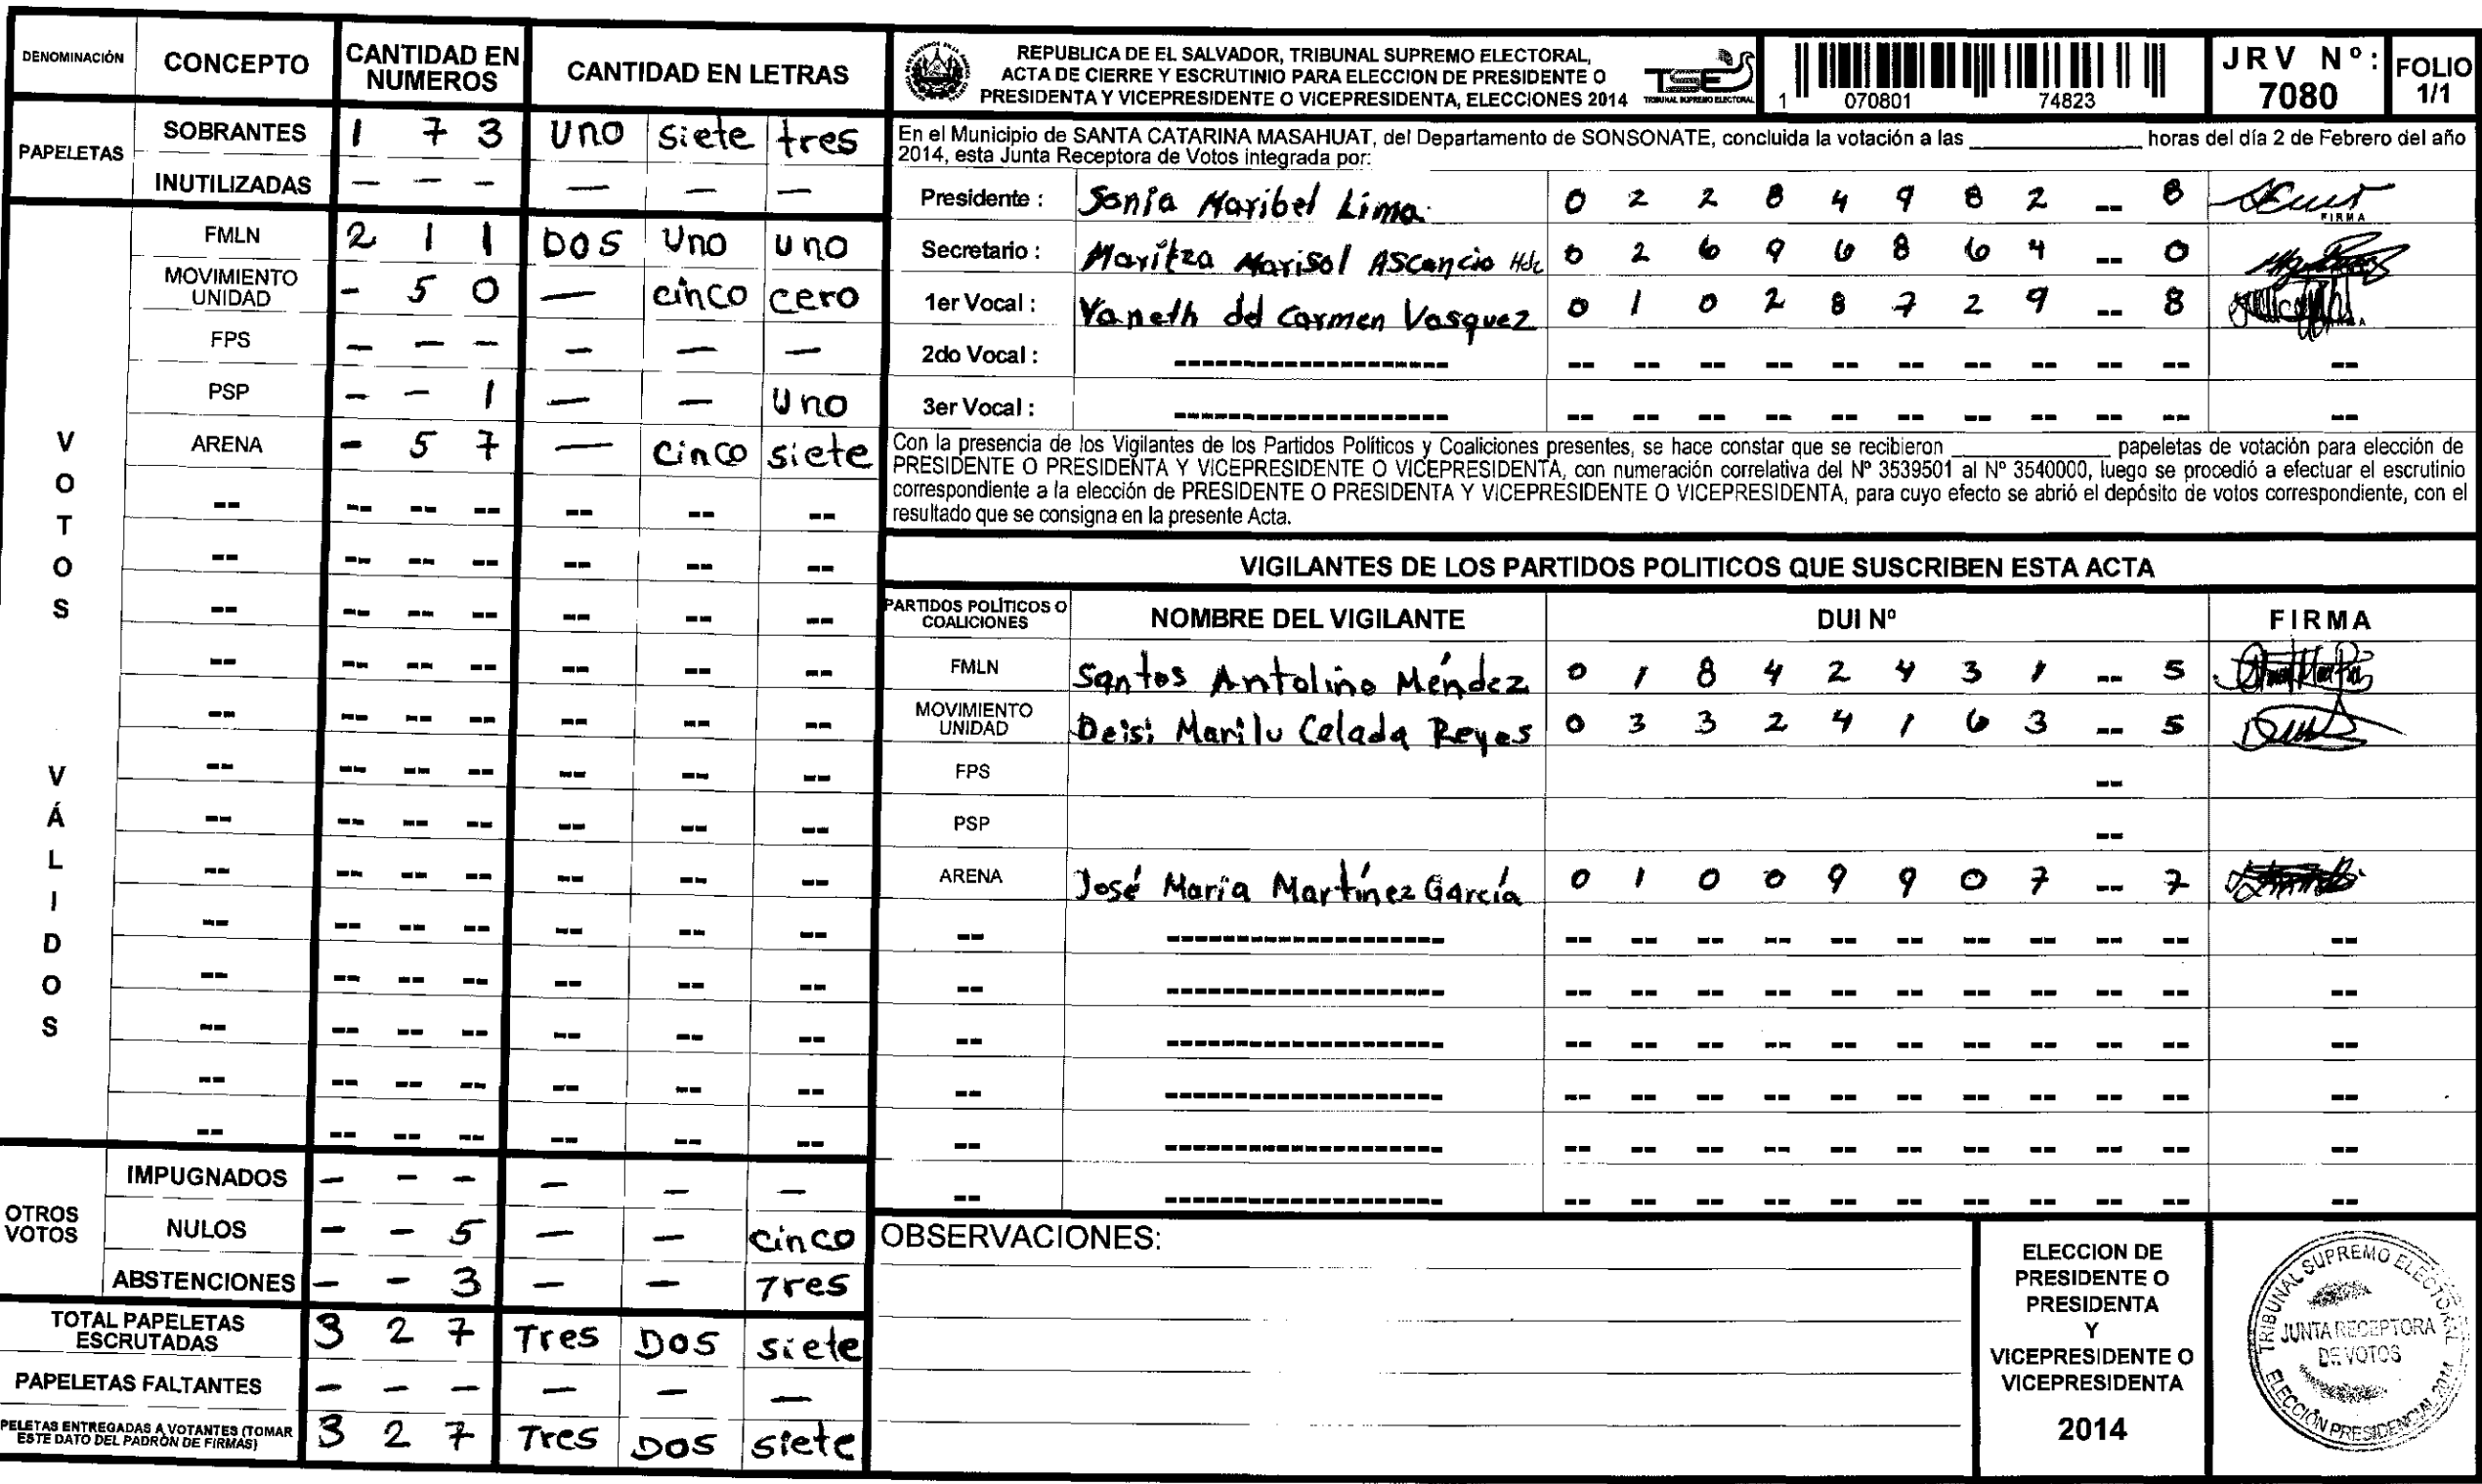 DENOMINACIÓN CONCEPTO CANTIDAD EN NUMEROS CANTIDAD EN LETRAS
PAPELETAS
SOBRANTES 1 7 3 uno siete tres
INUTILIZADAS — — — — — —
VOTOS VÁLIDOS
FMLN 2 1 1 DOS Uno uno
MOVIMIENTO UNIDAD - 5 0 — cinco cero
FPS — — — — — —
PSP — — 1 — — Uno
ARENA - 5 7 — cinco siete
-- -- -- -- -- -- --
-- -- -- -- -- -- --
-- -- -- -- -- -- --
-- -- -- -- -- -- --
-- -- -- -- -- -- --
-- -- -- -- -- -- --
-- -- -- -- -- -- --
-- -- -- -- -- -- --
-- -- -- -- -- -- --
-- -- -- -- -- -- --
-- -- -- -- -- -- --
-- -- -- -- -- -- --
-- -- -- -- -- -- --
OTROS VOTOS
IMPUGNADOS — — — — — —
NULOS — — 5 — — cinco
ABSTENCIONES — — 3 — — Tres
TOTAL PAPELETAS ESCRUTADAS 3 2 7 Tres DOS siete
PAPELETAS FALTANTES — — — — — —
PELETAS ENTREGADAS A VOTANTES (TOMAR ESTE DATO DEL PADRÓN DE FIRMAS) 3 2 7 Tres DOS siete
REPUBLICA DE EL SALVADOR, TRIBUNAL SUPREMO ELECTORAL,
ACTA DE CIERRE Y ESCRUTINIO PARA ELECCION DE PRESIDENTE O
PRESIDENTA Y VICEPRESIDENTE O VICEPRESIDENTA, ELECCIONES 2014
TSE
TRIBUNAL SUPREMO ELECTORAL
1 070801 74823
JRV Nº: 7080
FOLIO 1/1
En el Municipio de SANTA CATARINA MASAHUAT, del Departamento de SONSONATE, concluida la votación a las ________ horas del día 2 de Febrero del año
2014, esta Junta Receptora de Votos integrada por:
Presidente : Sonia Maribel Lima 0 2 2 8 4 9 8 2 -- 8 FIRMA
Secretario : Maritza Marisol Ascencio Hdz 0 2 6 9 6 8 6 4 -- 0
1er Vocal : Yaneth del Carmen Vasquez 0 1 0 2 8 7 2 9 -- 8
2do Vocal : -------------------- -- -- -- -- -- -- -- -- -- -- --
3er Vocal : -------------------- -- -- -- -- -- -- -- -- -- -- --
Con la presencia de los Vigilantes de los Partidos Políticos y Coaliciones presentes, se hace constar que se recibieron ________ papeletas de votación para elección de
PRESIDENTE O PRESIDENTA Y VICEPRESIDENTE O VICEPRESIDENTA, con numeración correlativa del Nº 3539501 al Nº 3540000, luego se procedió a efectuar el escrutinio
correspondiente a la elección de PRESIDENTE O PRESIDENTA Y VICEPRESIDENTE O VICEPRESIDENTA, para cuyo efecto se abrió el depósito de votos correspondiente, con el
resultado que se consigna en la presente Acta.
VIGILANTES DE LOS PARTIDOS POLITICOS QUE SUSCRIBEN ESTA ACTA
PARTIDOS POLÍTICOS O COALICIONES NOMBRE DEL VIGILANTE DUI Nº FIRMA
FMLN Santos Antolino Méndez 0 1 8 4 2 4 3 1 -- 5
MOVIMIENTO UNIDAD Deisi Marilu Celada Reyes 0 3 3 2 4 1 6 3 -- 5
FPS --
PSP --
ARENA José Maria Martínez García 0 1 0 0 9 9 0 7 -- 7
-- -------------------- -- -- -- -- -- -- -- -- -- -- --
-- -------------------- -- -- -- -- -- -- -- -- -- -- --
-- -------------------- -- -- -- -- -- -- -- -- -- -- --
-- -------------------- -- -- -- -- -- -- -- -- -- -- --
-- -------------------- -- -- -- -- -- -- -- -- -- -- --
-- -------------------- -- -- -- -- -- -- -- -- -- -- --
OBSERVACIONES:
ELECCION DE
PRESIDENTE O
PRESIDENTA
Y
VICEPRESIDENTE O
VICEPRESIDENTA
2014
TRIBUNAL SUPREMO ELECTORAL
JUNTA RECEPTORA
DE VOTOS
ELECCIÓN PRESIDENCIAL 2014